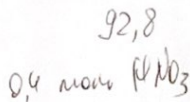 92,8
0,4 моль HNO3